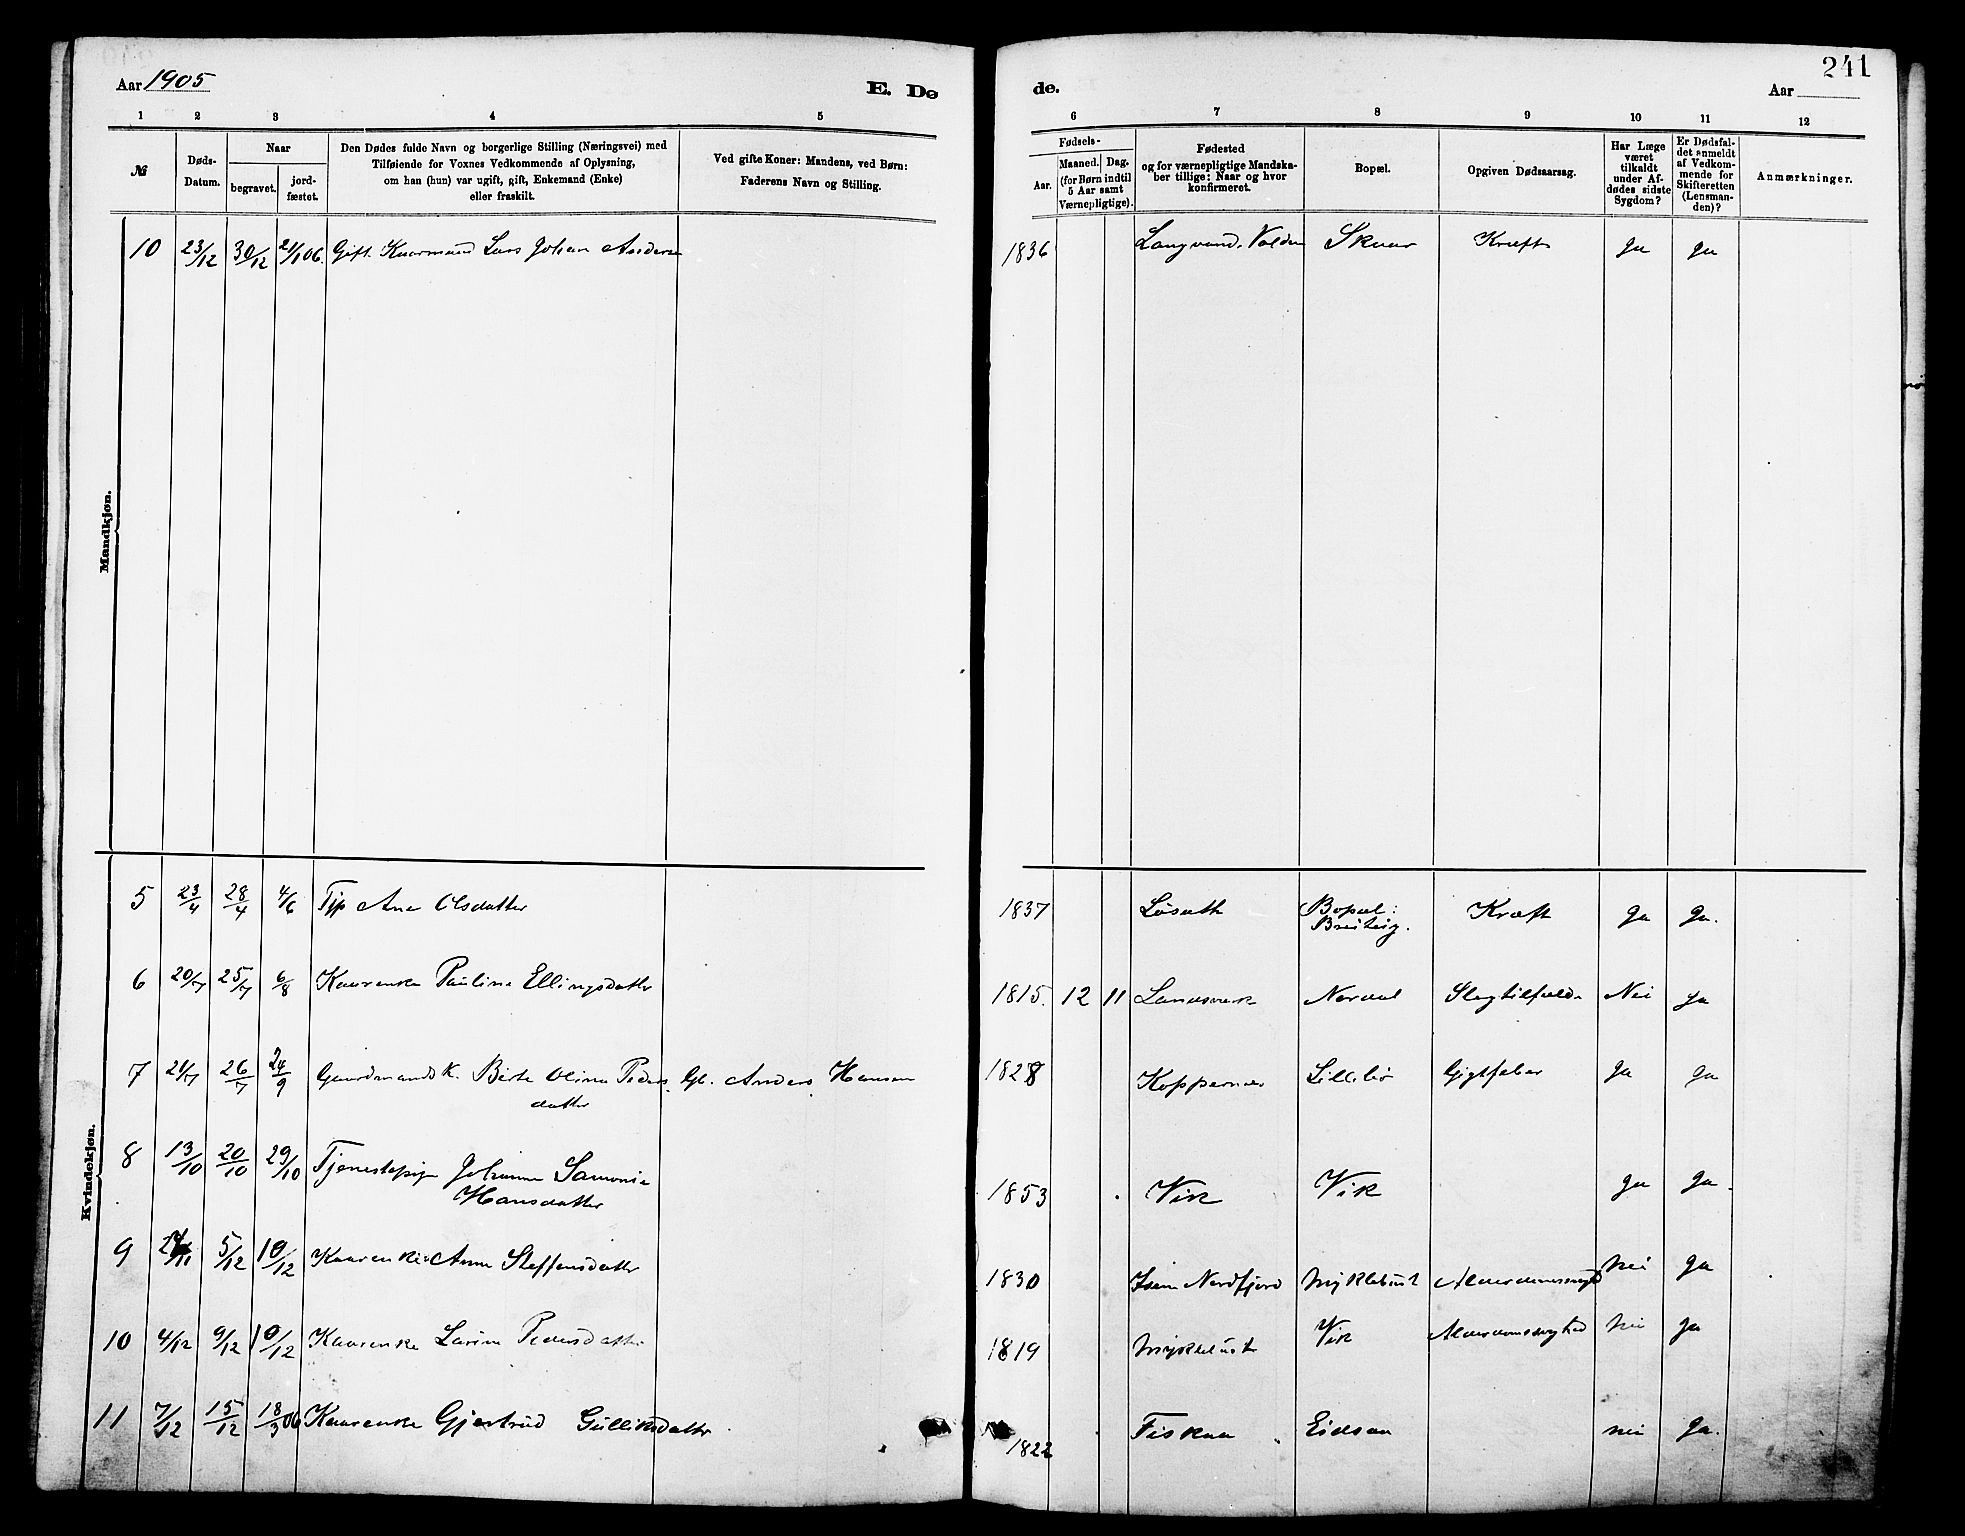 Aar 1905
E. Dø
1 2 3 4 5
№
Døds-
Datum.
Naar
begravet.
jord-
fæstet.
Den Dødes fulde Navn og borgerlige Stilling (Næringsvei) med
Tilføiende for Voxnes Vedkommende af Oplysning,
om han (hun) var ugift, gift, Enkemand (Enke)
eller fraskilt.
Ved gifte Koner: Mandens, ved Børn:
Faderens Navn og Stilling.
Mandkjøn.
10 23/12 30/12 21/1 06. Gift Kaarmand Lars Johan Andersen
Kvindekjøn.
5 23/4 28/4 4/6 Tjp Ane Olsdatter
6 20/7 25/7 6/8 Kaarenke Pauline Ellingsdatter
7 21/7 26/7 24/9 Gaardmandsk. Birte Oline Peders Gl. Anders Hansen
datter
8 13/10 20/10 29/10 Tjenestepige Johanne Samonie
Hansdatter
9 5/12 10/12 Kaarenke Anne Steffensdatter
10 4/12 9/12 10/12 Kaarenke Larine Pedersdatter
11 7/12 15/12 18/3 06 Kaarenke Gjertrud Gulliksdatter
241
de.
Aar
6 7 8 9 10 11 12
Fødsels-
Aar.
Maaned. Dag.
(for Børn indtil
5 Aar samt
Værnepligtige).
Fødested
og for værnepligtige Mandska-
ber tillige: Naar og hvor
konfirmeret.
Bopæl.
Opgiven Dødsaarsag.
Har Læge
været
tilkaldt
under Af-
dødes sidste
Sygdom?
Er Dødsfal-
det anmeldt
af Vedkom-
mende for
Skifteretten
(Lensman-
den)?
Anmærkninger.
1836 Langvand. Volden Skaar Kræft Ja Ja
1837 Løsæth Bopæl:
Breiteig. Kræft Ja Ja.
1815. 12 11 Landsverk Nordal Slagtilfælde Nei Ja
1828 Koppernæs Lillebø Gigtfeber Ja Ja
1853 Vik Vik Ja Ja
1830 Nordfjord Myklebust Alderdomssvaghed Nei Ja
1819 Myklebust Vik Alderdomssvaghed Nei Ja
1822 Fiskaa Eidsaa nei Ja.